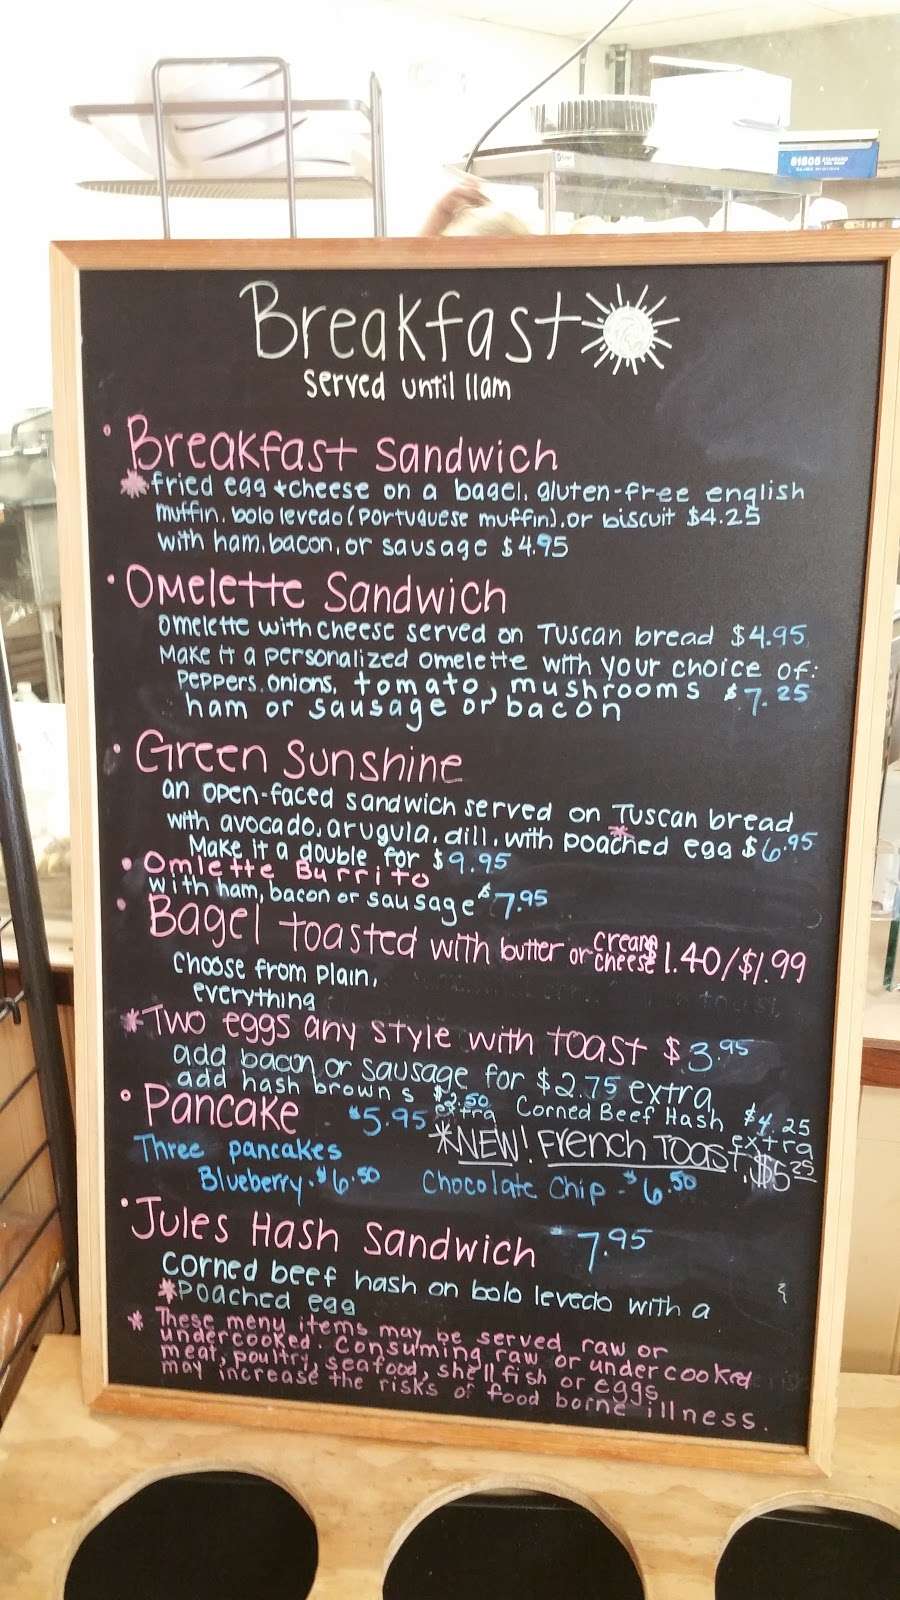 81808 STANDARD
Breakfast
served until 11am
• Breakfast Sandwich
*fried egg + cheese on a bagel, gluten-free english
muffin, bolo levedo (Portuguese muffin), or biscuit $4.25
with ham, bacon, or sausage $4.95
• Omelette Sandwich
omelette with cheese served on Tuscan bread $4.95
Make it a personalized omelette with your choice of:
peppers, onions, tomato, mushrooms $7.25
ham or sausage or bacon
• Green Sunshine
an open-faced sandwich served on Tuscan bread
with avocado, arugula, dill, with *poached egg $6.95
Make it a double for $9.95
• Omlette Burrito
with ham, bacon or sausage $7.95
• Bagel toasted with butter or cream cheese 1.40/$1.99
Choose from plain,
everything
*Two eggs any style with toast $3.95
add bacon or sausage for $2.75 extra
add hash browns $2.50 extra Corned Beef Hash $4.25 extra
• Pancake $5.95
*NEW! French Toast $5.25
Three pancakes
Blueberry - $6.50 Chocolate Chip - $6.50
• Jules Hash Sandwich $7.95
corned beef hash on bolo levedo with a
*poached egg
* These menu items may be served raw or
undercooked. Consuming raw or undercooked
meat, poultry, seafood, shellfish or eggs
may increase the risks of food borne illness.